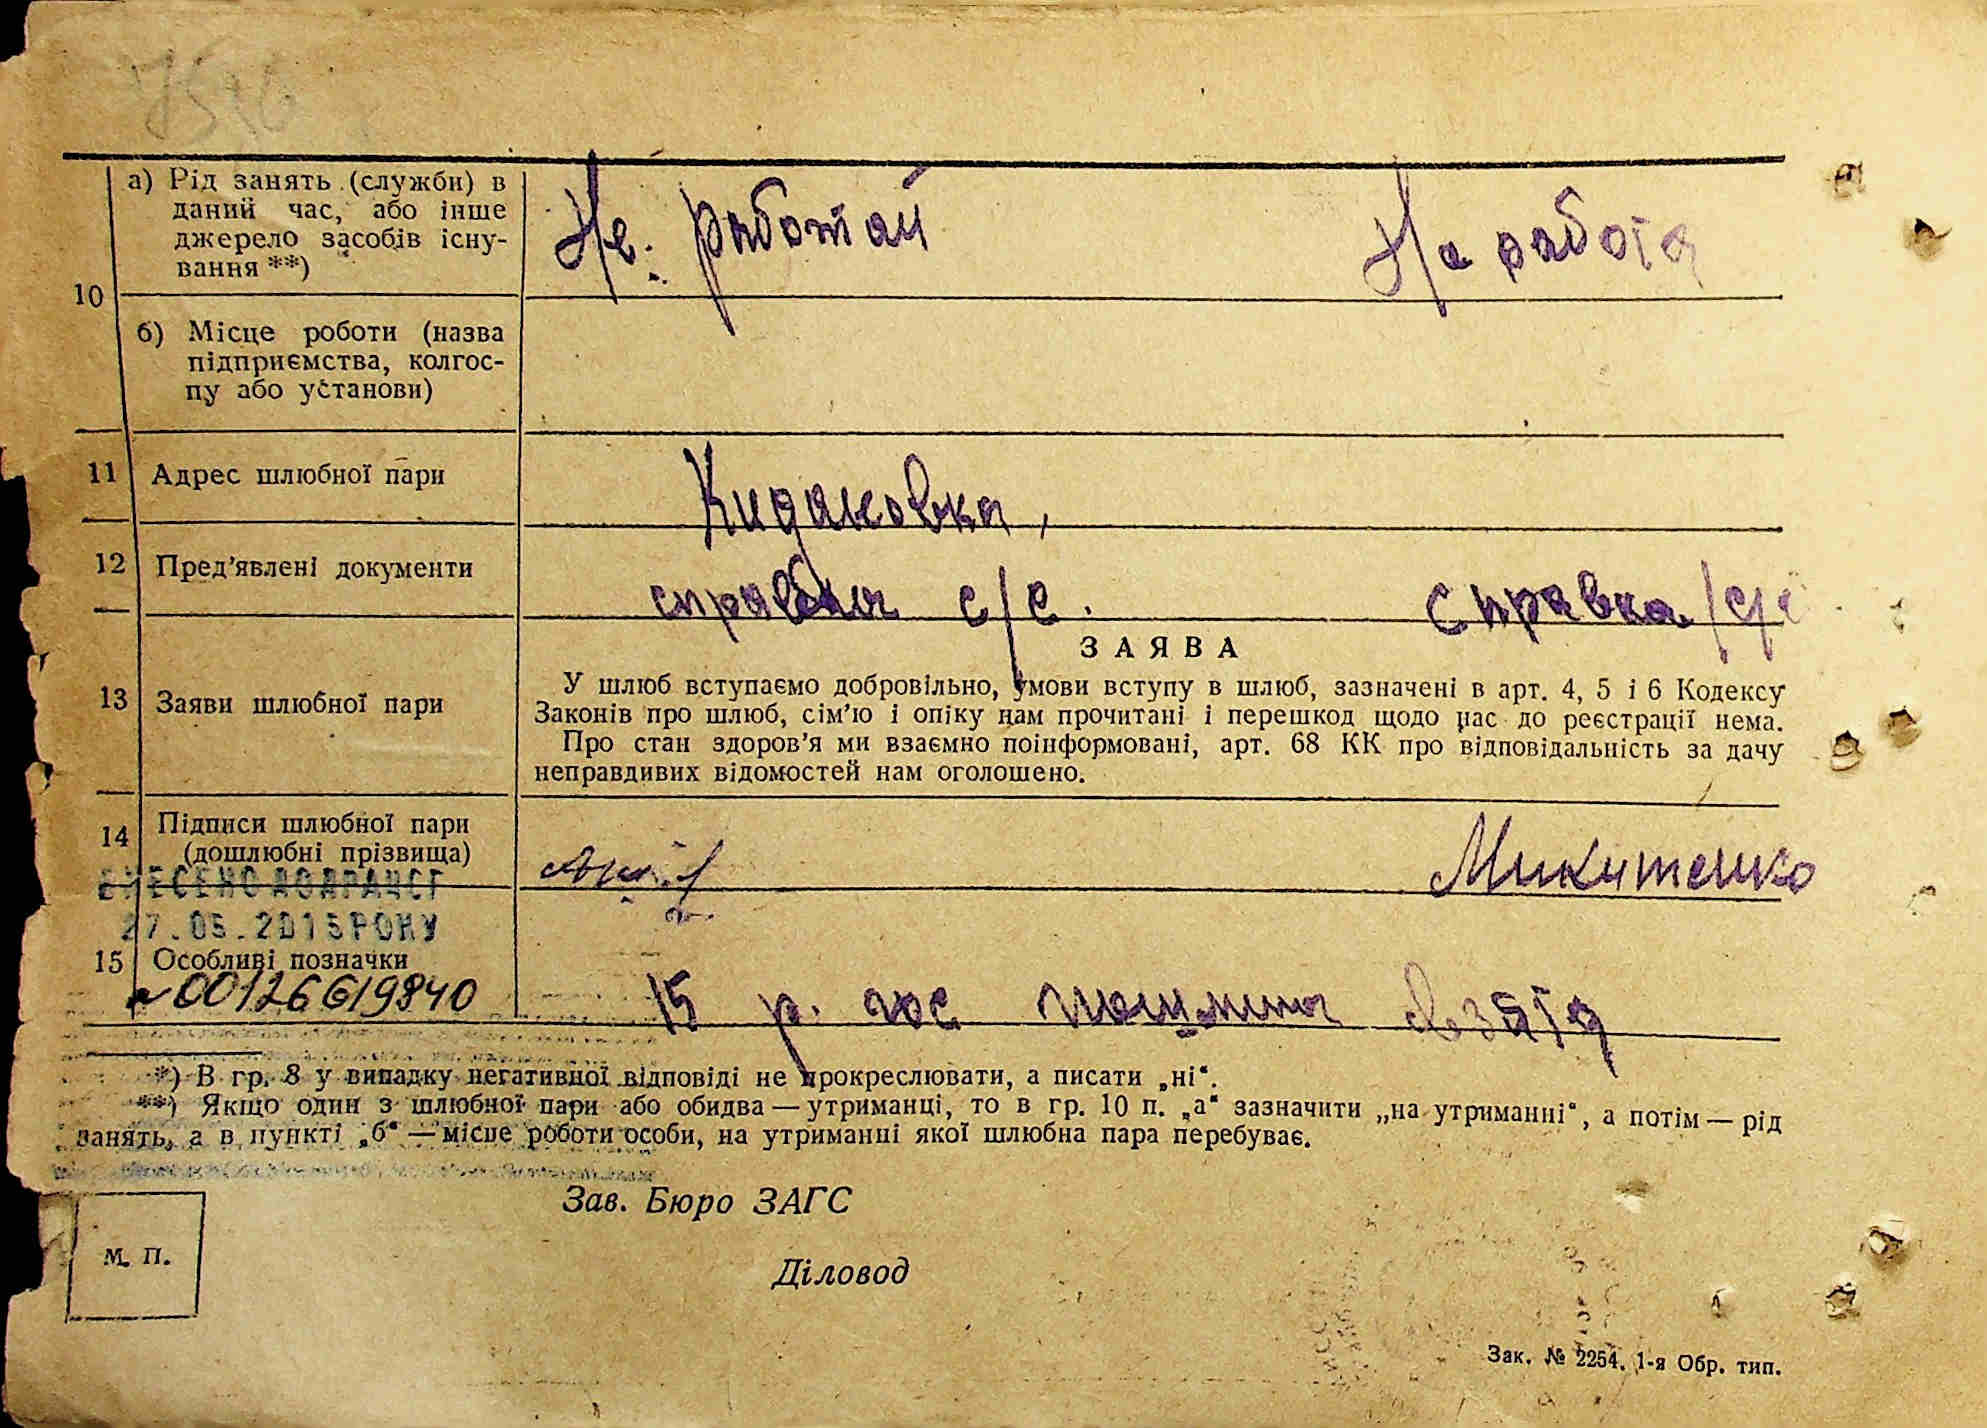 а) Рід занять (служби) в
даний час, або інше
джерело засобів існу-
вання **)
Не работай
На работа
10
б) Місце роботи (назва
підприємства, колгос-
пу або установи)
11 Адрес шлюбної пари
12 Пред'явлені документи
справка с/с.
Справка/с/с
ЗАЯВА
13 Заяви шлюбної пари
У шлюб вступаємо добровільно, умови вступу в шлюб, зазначені в арт. 4, 5 і 6 Кодексу
Законів про шлюб, сім'ю і опіку нам прочитані і перешкод щодо нас до реєстрації нема.
Про стан здоров'я ми взаємно поінформовані, арт. 68 КК про відповідальність за дачу
неправдивих відомостей нам оголошено.
14 Підписи шлюбної пари
(дошлюбні прізвища)
Микитенко
ВНЕСЕНО ДО ДРАЦСГ
27.05.2015РОКУ
15 Особливі позначки
00126619840
15 р. гос пошлина взята
*) В гр. 8 у випадку негативної відповіді не прокреслювати, а писати „ні“.
**) Якщо один з шлюбної пари або обидва — утриманці, то в гр. 10 п. „а“ зазначити „на утриманні“, а потім — рід
занять, а в пункті „б“ — місце роботи особи, на утриманні якої шлюбна пара перебуває.
Зав. Бюро ЗАГС
М. П.
Діловод
Зак. № 2254. 1-я Обр. тип.